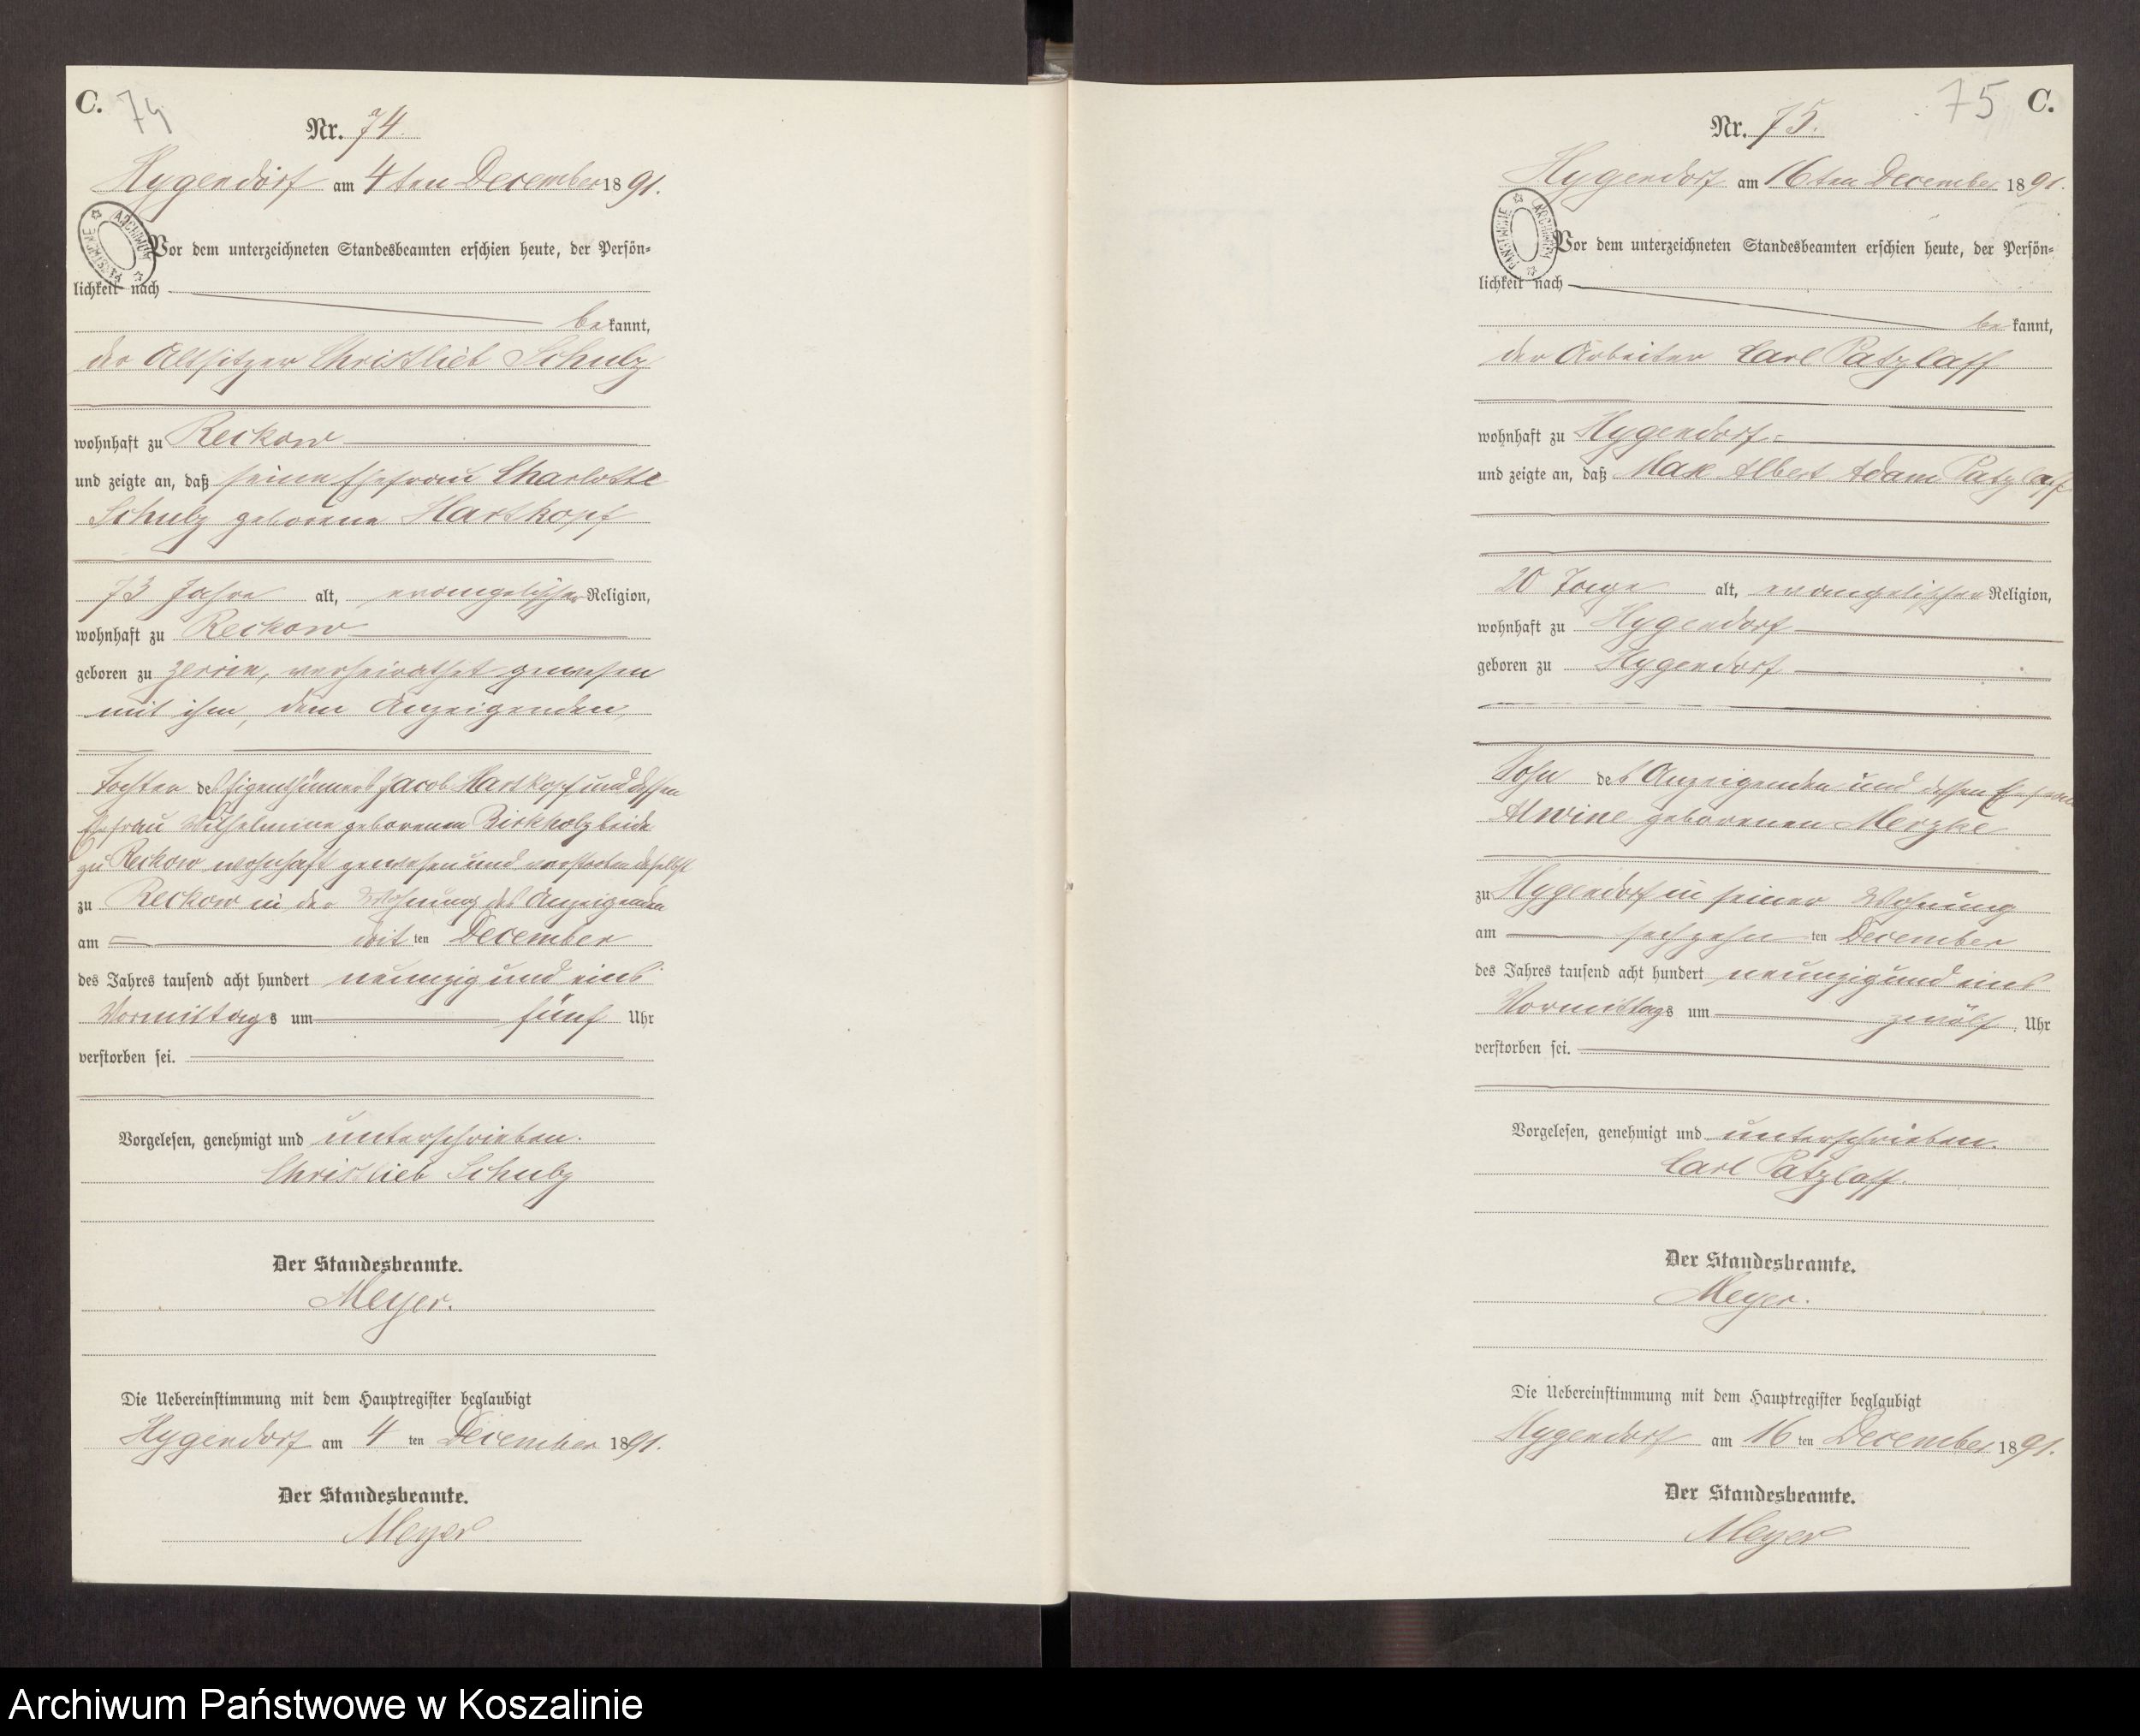 C. 74
Nr. 74.
Hygendorf am 4ten December 1891.
Vor dem unterzeichneten Standesbeamten erschien heute, der Persön-
lichkeit nach
bekannt,
der Altsitzer Christlieb Schulz
wohnhaft zu Reckow
und zeigte an, daß seine Ehefrau Charlotte
Schulz geborene Hartkopf
73 Jahre alt, evangelischer Religion,
wohnhaft zu Reckow
geboren zu Zerrin, verheirathet gewesen
mit ihm, dem Anzeigenden,
Tochter des Eigenthümers Jacob Hartkopf und dessen
Ehefrau Wilhelmine geborenen Birkholz beide
zu Reckow wohnhaft gewesen und verstorben daselbst
zu Reckow in der Wohnung des Anzeigenden
am drit ten December
des Jahres tausend acht hundert neunzig und eins
Vormittags um fünf Uhr
verstorben sei.
Vorgelesen, genehmigt und unterschrieben.
Christlieb Schulz
Der Standesbeamte.
Meyer.
Die Uebereinstimmung mit dem Hauptregister beglaubigt
Hygendorf am 4 ten December 1891.
Der Standesbeamte.
Meyer
ARCHIWUM PAŃSTWOWE
75 C.
Nr. 75.
Hygendorf am 16ten December 1891.
Vor dem unterzeichneten Standesbeamten erschien heute, der Persön-
lichkeit nach
bekannt,
der Arbeiter Carl Patzlaff
wohnhaft zu Hygendorf
und zeigte an, daß Max Albert Adam Patzlaff
20 Tage alt, evangelischer Religion,
wohnhaft zu Hygendorf
geboren zu Hygendorf
Sohn des Anzeigenden und dessen Ehefrau
Alwine geborenen Merzke
zu Hygendorf in seiner Wohnung
am sechzehn ten December
des Jahres tausend acht hundert neunzig und eins
Vormittags um zwölf Uhr
verstorben sei.
Vorgelesen, genehmigt und unterschrieben.
Carl Patzlaff.
Der Standesbeamte.
Meyer.
Die Uebereinstimmung mit dem Hauptregister beglaubigt
Hygendorf am 16 ten December 1891.
Der Standesbeamte.
Meyer
ARCHIWUM PAŃSTWOWE
Archiwum Państwowe w Koszalinie